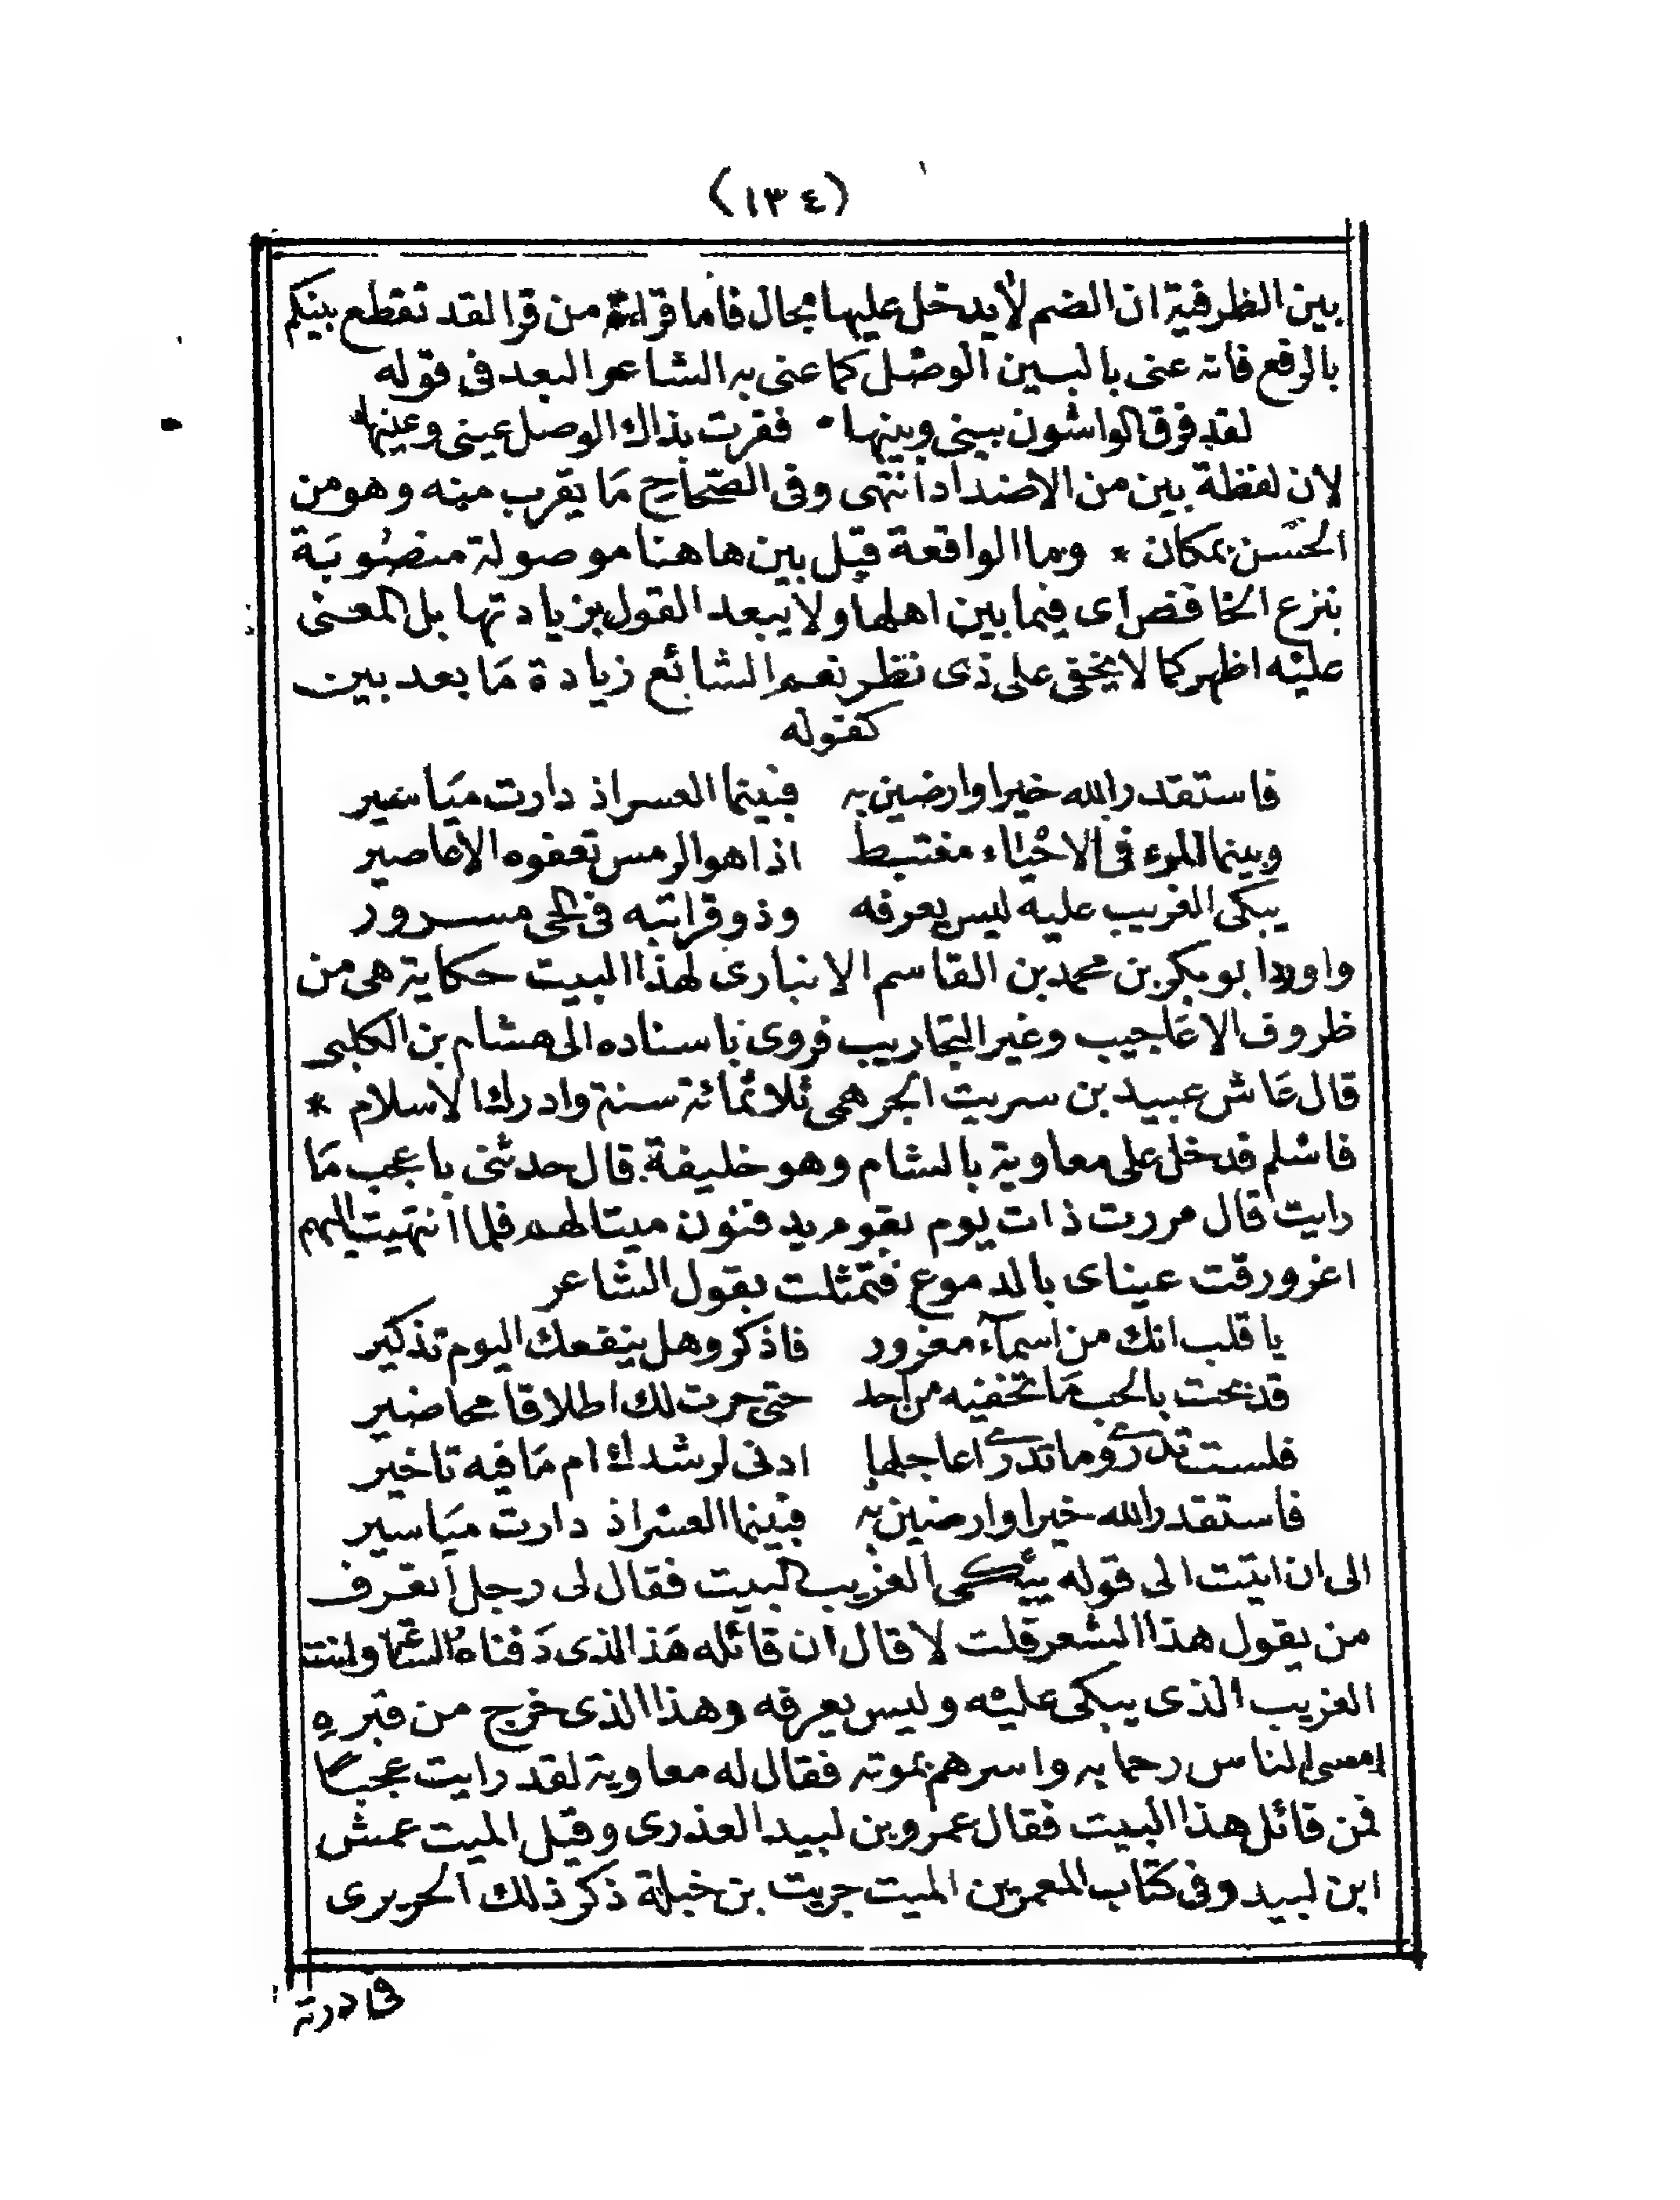 (١٣٤)
بين الظرفية ان الضم لا يدخل عليها بحال فاما قراءة من قرا لقد تقطع بينكم
بالرفع فانه عنى بالبين الوصل كما عنى به الشاعر البعد فى قوله
لقد فرق الواشون بينى وبينها فقرت بذاك الوصل عينى وعينها
لان لفظة بين من الاضداد انتهى وفى الصحاح مَا يقرب منه وهو من
الحسن بمكان * وما الواقعة قبل بين هاهنا موصولة منصوبَة
بنزع الخافض اى فيما بين اهلها ولا يبعد القول بزيادتها بل المعنى
عليه اظهر كما لا يخفى على ذى نظر نعم الشائع زيادة مَا بعد بين
كقوله
فاستقدر الله خيرا وارضين به فبينما العسر اذ دارت ميَاسير
وبينما المرء فى الاحياء مغتبط اذا هو الرمس تعفوه الاعاصير
يبكى الغريب عليه ليس يعرفه وذو قرابته فى الحى مسرور
واورد ابو بكر بن محمد بن القاسم الانبارى لهذا البيت حكاية هى من
ظروف الاعَاجيب وغير التجاريب فروى باسناده الى هشام بن الكلبى
قال عَاش عبيد بن سريت الجرهمى ثلاثمائة سنة وادرك الاسلام *
فاسلم فدخل على معاوية بالشام وهو خليفة قال حدثنى باعجب مَا
رايت قال مررت ذات يوم بقوم يدفنون ميتا لهم فلما انتهيت اليهم
اغرورقت عيناى بالدموع فتمثلت بقول الشاعر
يا قلب انك من اسمآء مغرور فاذكر وهل ينفعك اليوم تذكير
قد بحت بالحب مَا تخفيه من احد حتى جرت لك اطلاقا محاضير
فلست تدرى وما تدرى اعاجلها ادنى لرشدك ام مَا فيه تاخير
فاستقدر الله خيرا وارضين به فبينما العسر اذ دارت ميَاسير
الى ان اتيت الى قوله يبكى الغريب البيت فقال لى رجل اتعرف
من يقول هذا الشعر قلت لا قال ان قائله هَذا الذى دَفناه الساعة وانت
الغريب الذى يبكى عليه وليس يعرفه وهذا الذى خرج من قبره
امس الناس رحما به واسرهم بموته فقال له معاوية لقد رايت عجبًا
فمن قائل هذا البيت فقال عمرو بن لبيد العذرى وقيل الميت عمش
ابن لبيد وفى كتاب المعمرين الميت حريث بن جبلة ذكر ذلك الحريرى
فى درته